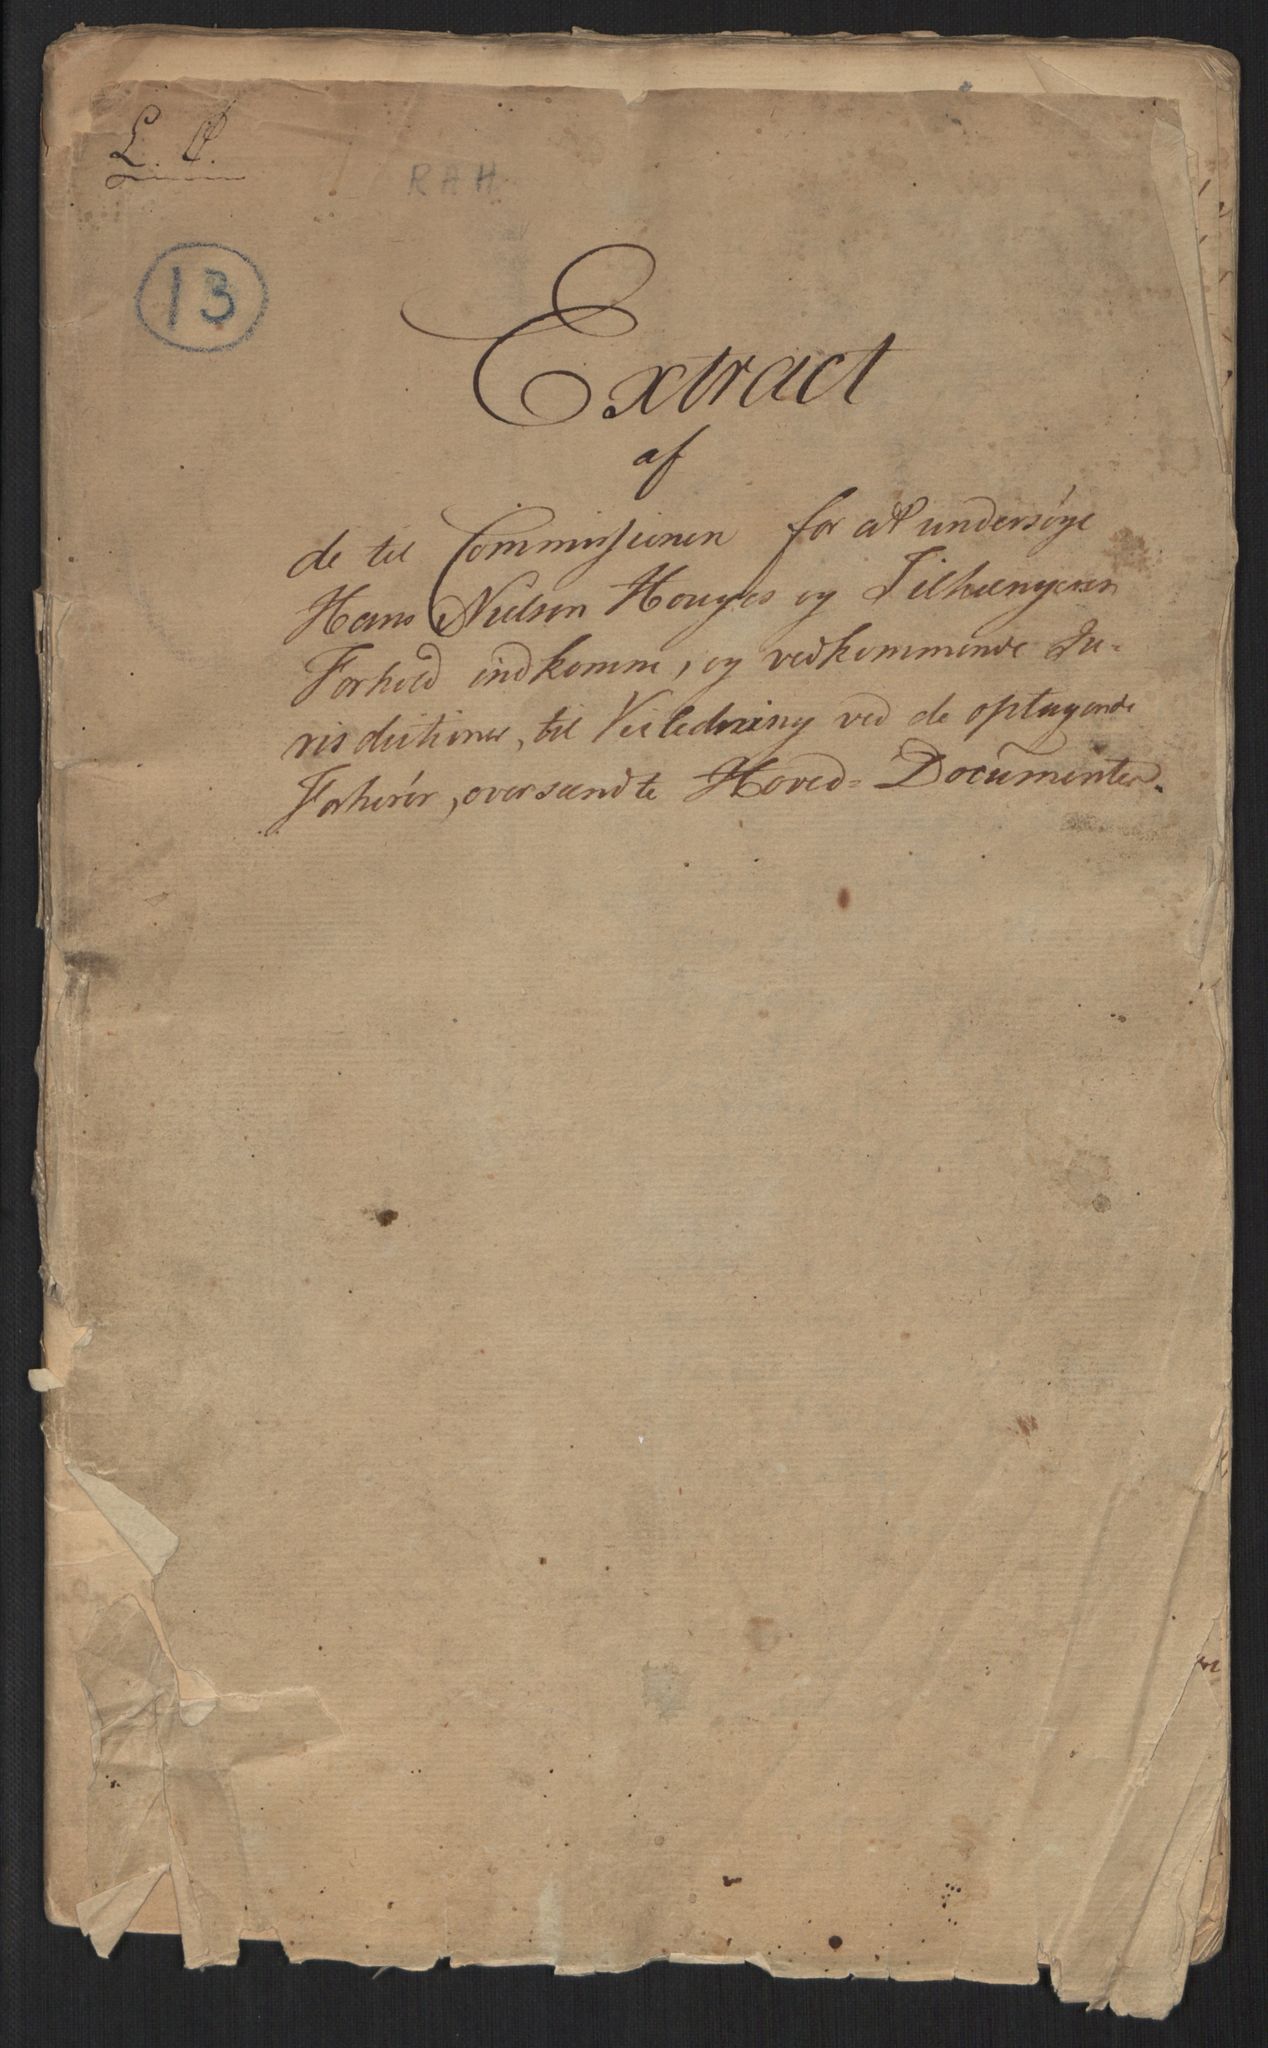 L. P.
RAH.
13
Extract
af
de til Commissionen for at undersöge
Hans Nielsen Houges og Tilhængeres
Forhold indkomne, og vedkommende Ju-
risdictioner, til Veiledning ved de optagende
Forhörer, oversendte Hoved-Documenter.